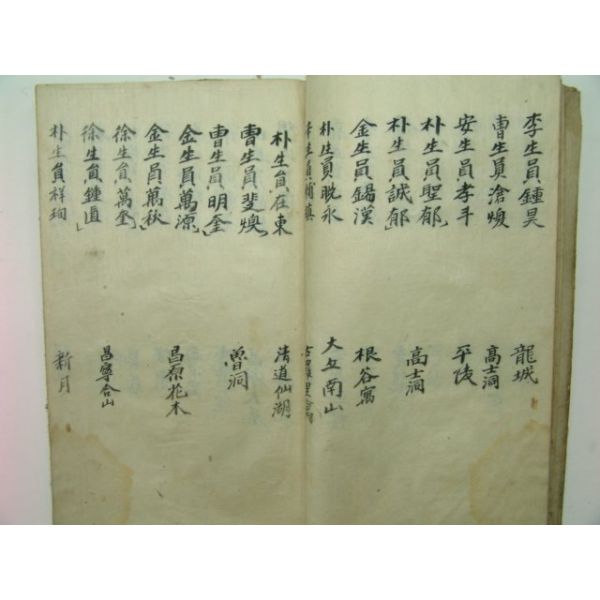 李生員鍾昊 龍城
曺生員滄煥 高士洞
安生員孝手 平陵
朴生員聖郁
朴生員誠郁 高士洞
金生員錫漢 根谷寓
朴生員脫永 大丘南山
生員
朴生員在東 清道仙湖
曺生員斐煥
曺生員明奎 魯洞
金生員萬源
金生員萬秋 昌原花木
徐生員萬奎
徐生員鍾直 昌寧合山
朴生員祥珣 新月